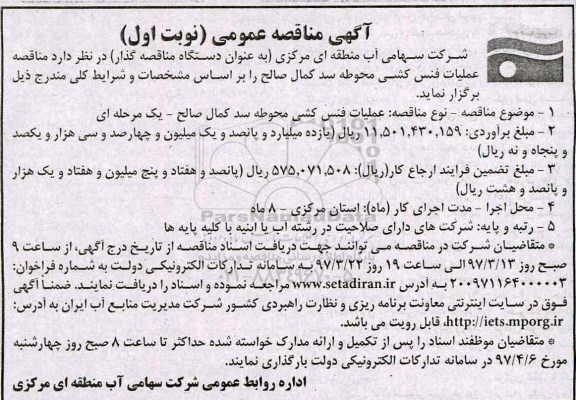 آگهی مناقصه عمومی (نوبت اول)
شرکت سهامی آب منطقه ای مرکزی (به عنوان دستگاه مناقصه گذار) در نظر دارد مناقصه
عملیات فنس کشی محوطه سد کمال صالح را بر اساس مشخصات و شرایط کلی مندرج ذیل
برگزار نماید.
۱ - موضوع مناقصه - نوع مناقصه: عملیات فنس کشی محوطه سد کمال صالح - یک مرحله ای
۲ - مبلغ برآوردی: ۱۱,۵۰۱,۴۳۰,۱۵۹ ریال (یازده میلیارد و پانصد و یک میلیون و چهارصد و سی هزار و یکصد
و پنجاه و نه ریال)
۳ - مبلغ تضمین فرایند ارجاع کار(ریال): ۵۷۵,۰۷۱,۵۰۸ ریال (پانصد و هفتاد و پنج میلیون و هفتاد و یک هزار
و پانصد و هشت ریال)
۴ - محل اجرا - مدت اجرای کار (ماه): استان مرکزی - ۸ ماه
ParsNamadData
۵ - رتبه و پایه: شرکت های دارای صلاحیت در رشته اب یا ابنیه با کلیه پایه ها
* متقاضیان شرکت در مناقصه می توانند جهت دریافت اسناد مناقصه از تاریخ درج آگهی، از ساعت ۹
صبح روز ۹۷/۳/۱۳ الی ساعت ۱۹ روز ۹۷/۳/۲۲ به سامانه تدارکات الکترونیکی دولت به شماره فراخوان:
۲۰۰۹۷۱۱۶۴۰۰۰۰۰۳ به آدرس www.setadiran.ir مراجعه نموده و اسناد را دریافت نمایند. ضمنا آگهی
فوق در سایت اینترنتی معاونت برنامه ریزی و نظارت راهبردی کشور شرکت مدیریت منابع آب ایران به آدرس:
http://iets.mporg.ir، قابل رویت می باشد.
* متقاضیان موظفند اسناد را پس از تکمیل و ارائه مدارک خواسته شده حداکثر تا ساعت ۸ صبح روز چهارشنبه
مورخ ۹۷/۴/۶ در سامانه تدارکات الکترونیکی دولت بارگذاری نمایند.
اداره روابط عمومی شرکت سهامی آب منطقه ای مرکزی